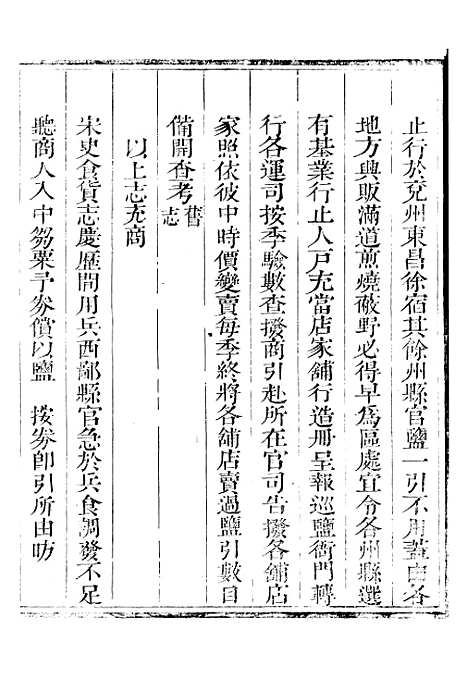 止行於兗州東昌徐宿其餘州縣官鹽一引不用蓋由各
地方興販滿道煎燒蔽野必得早為區處宜令各州縣選
有基業行止人戸充當店家舖行造冊呈報巡鹽衙門轉
行各運司按季驗數查撥商引赴所在官司告撥各舖店
家照依彼中時價變賣每季終將各舖店賣過鹽引數目
備開查考舊志
以上志充商
宋史食貨志慶歷間用兵西鄙縣官急於兵食調發不足
聽商人入中芻粟予劵償以鹽　按劵卽引所由昉